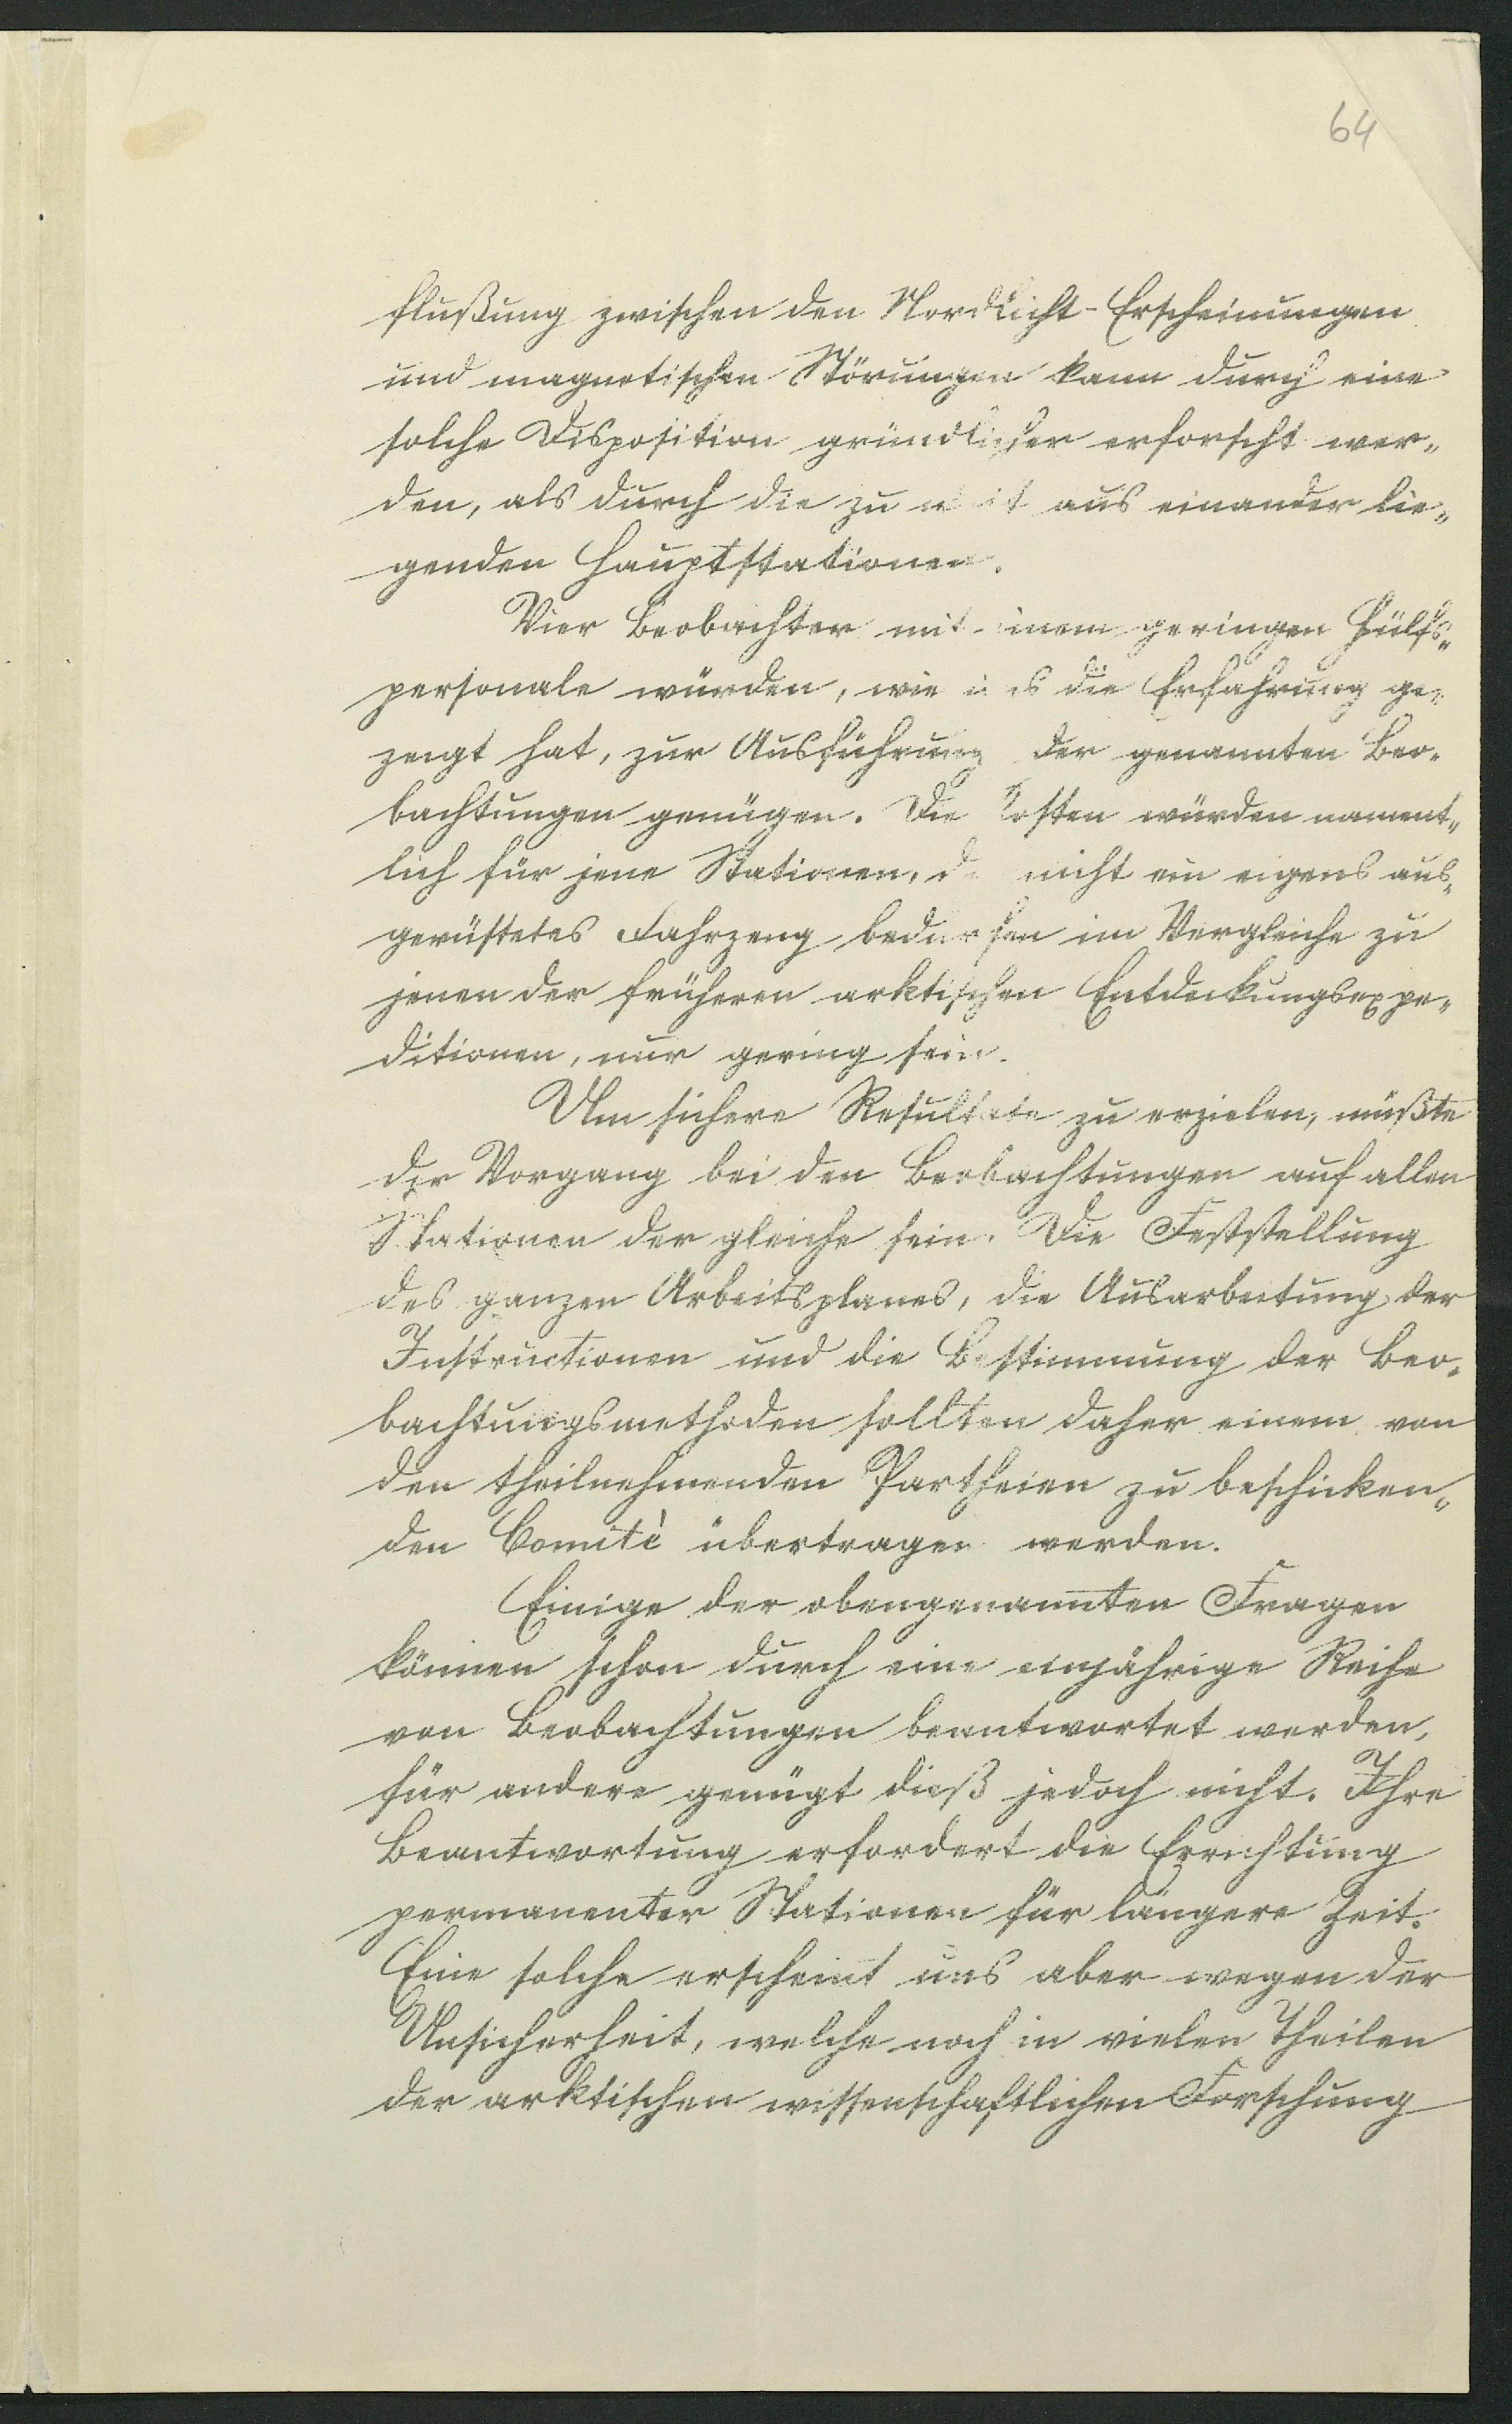 64
flußung zwischen den Nordlicht-Erscheinungen
und magnetischen Störungen kann durch eine
solche Disposition gründlicher erforscht wer„
den, als durch die zu weit aus einander lie„
genden Hauptstationen.
Vier Beobachter mit einem geringen Hülfs„
personale würden, wie uns die Erfahrung ge„
zeigt hat, zur Ausführung der genannten Beo„
bachtungen genügen. Die Kosten würden nament„
lich für jene Stationen, die nicht ein eigens aus„
gerüstetes Fahrzeug bedürfen im Vergleiche zu
jenen der früheren arktischen Entdeckungsexpe„
ditionen, nur gering sein.
Um sichere Resultate zu erzielen, müßte
der Vorgang bei den Beobachtungen auf allen
Stationen der gleiche sein. Die Feststellung
des ganzen Arbeitsplanes, die Ausarbeitung der
Instructionen und die Bestimmung der Beo„
bachtungsmethoden sollten daher einem von
den theilnehmenden Partheien zu beschicken„
den Comitè übertragen werden.
Einige der obengenannten Fragen
können schon durch eine einjährige Reihe
von Beobachtungen beantwortet werden,
für andere genügt dieß jedoch nicht. Ihre
Beantwortung erfordert die Errichtung
permanenter Stationen für längere Zeit.
Eine solche erscheint uns aber wegen der
Unsicherheit, welche noch in vielen Theilen
der arktischen wissenschaftlichen Forschung